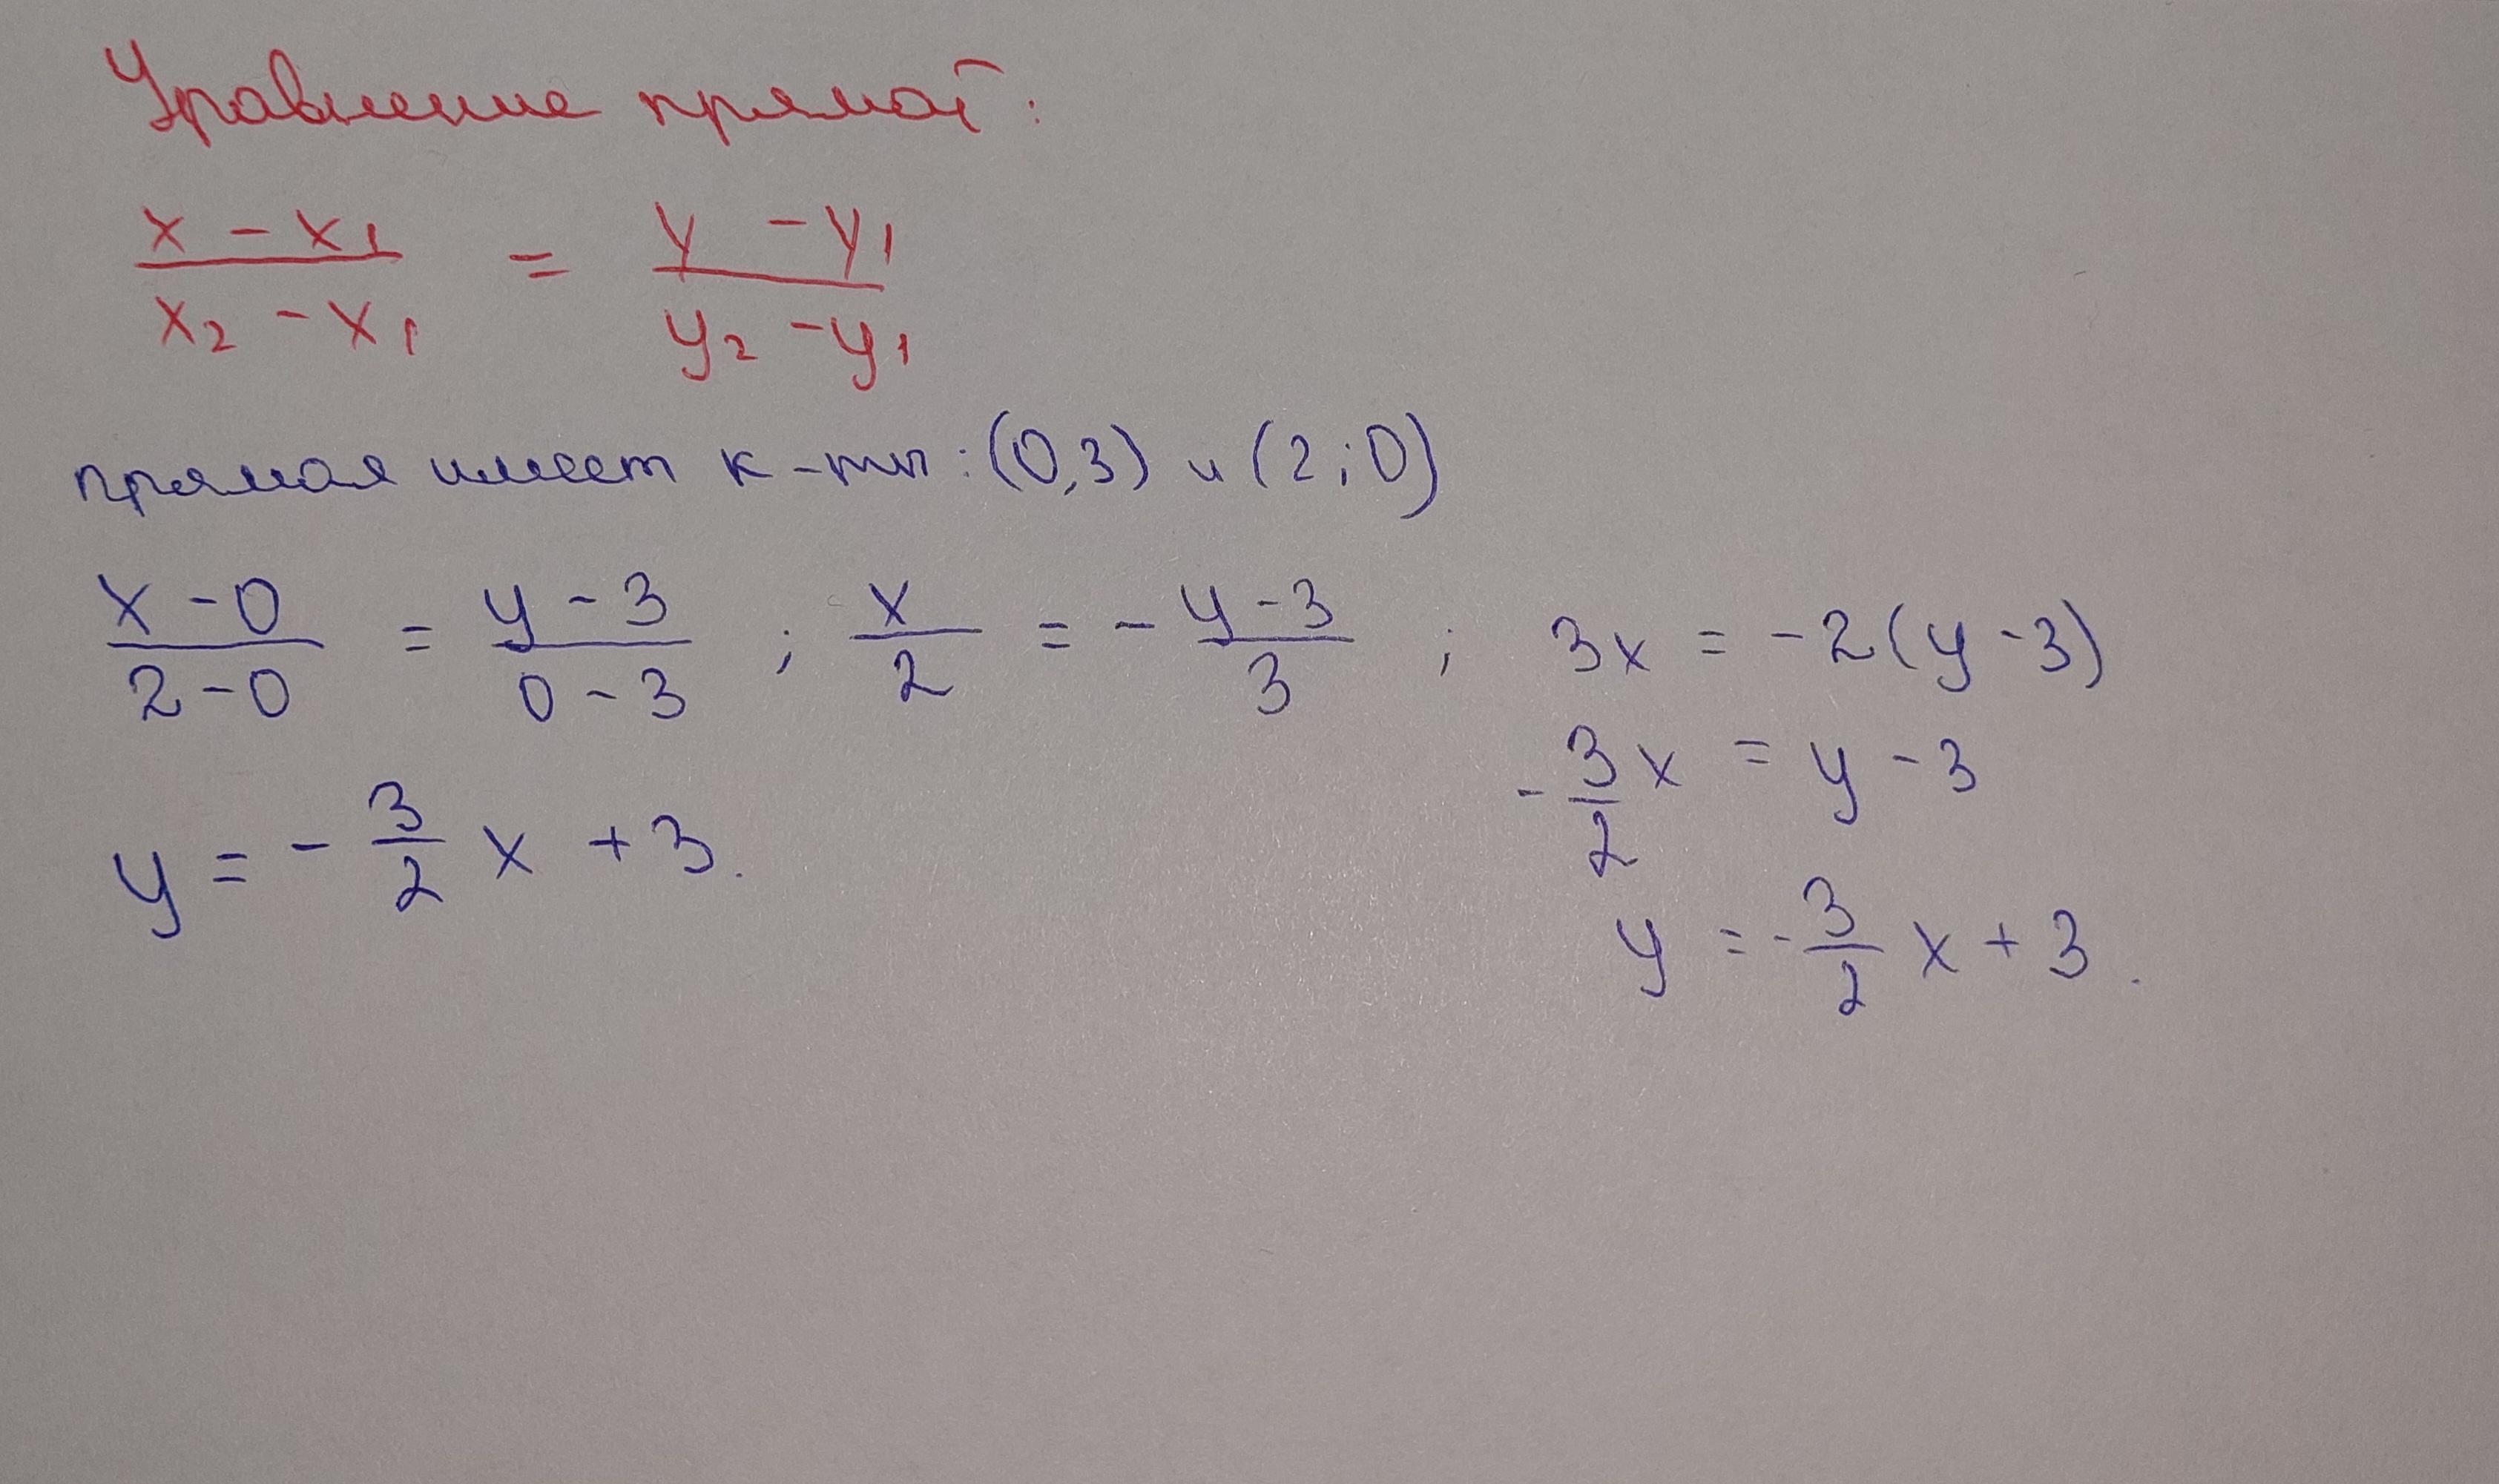 Уравнение прямой:
x - x₁ / x₂ - x₁ = y - y₁ / y₂ - y₁
прямая имеет к-ты: (0,3) и (2;0)
x - 0 / 2 - 0 = y - 3 / 0 - 3 ; x / 2 = - y - 3 / 3 ; 3x = -2(y - 3)
- 3/2 x = y - 3
y = - 3/2 x + 3.
y = - 3/2 x + 3.